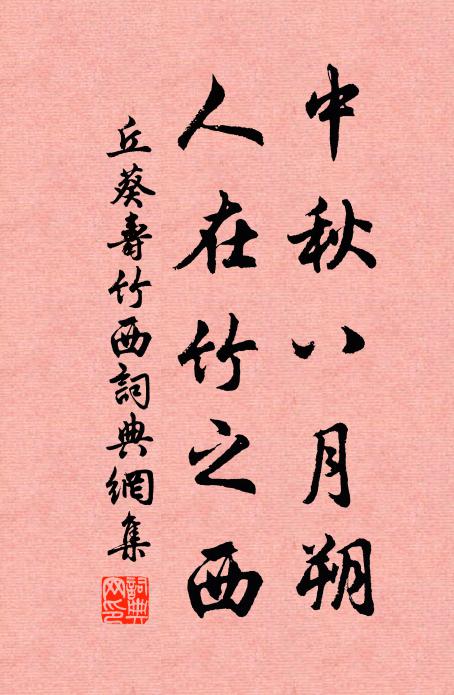 中秋八月朔
人在竹之西
丘葵壽竹西詞典網集
詞典網印